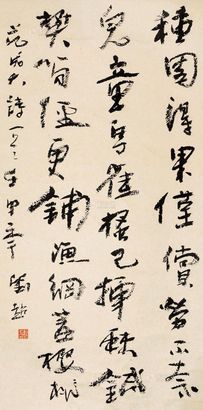 種園得果僅償勞不奈
兒童鳥雀搔已插棘針
樊笋徑更鋪漁網蓋櫻桃
范成大詩一首